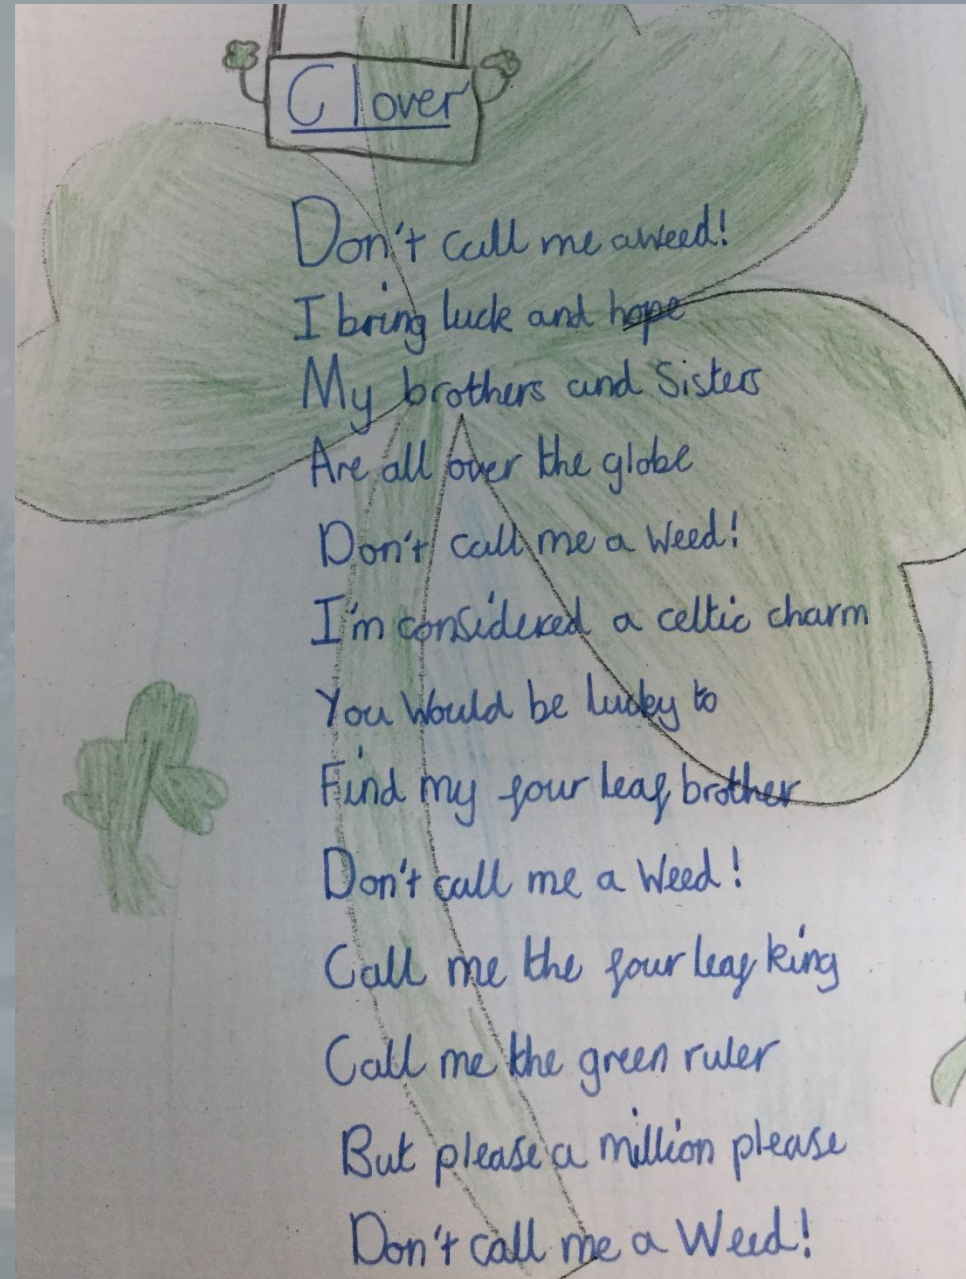 Clover
Don't call me a weed!
I bring luck and hope
My brothers and Sisters
Are all over the globe
Don't call me a Weed!
I'm considered a celtic charm
You Would be lucky to
Find my four leaf brother
Don't call me a Weed!
Call me the four leaf king
Call me the green ruler
But please a million please
Don't call me a Weed!